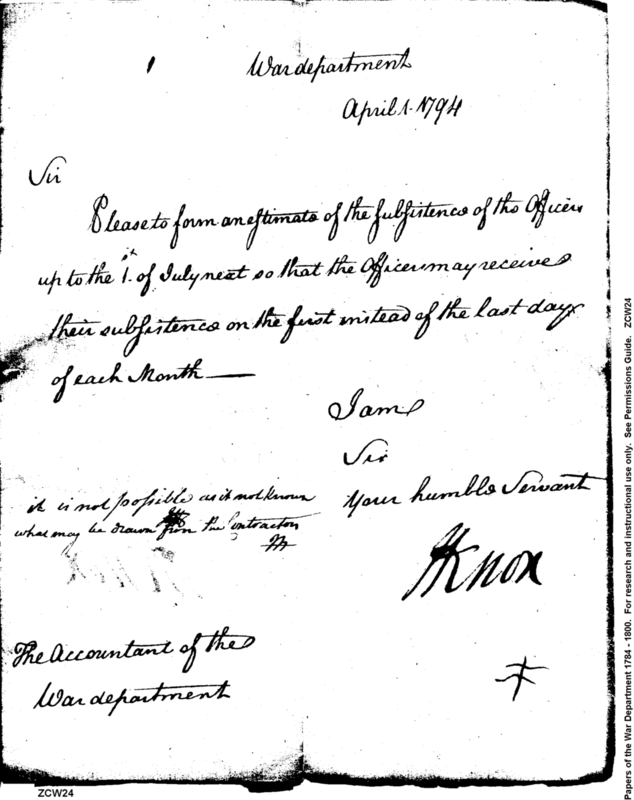 War department
April 1. 1794
Sir
Please to form an estimate of the subsistence of the Officers
up to the 1.st of July next so that the Officers may receive
their subsistence on the first instead of the last day
of each Month —
I am
Sir
Your humble Servant
HKnox
it is not possible as it not known
what may be drawn from the Contractors
The Accountant of the
War department
ZCW24
Papers of the War Department 1784 - 1800. For research and instructional use only. See Permissions Guide. ZCW24